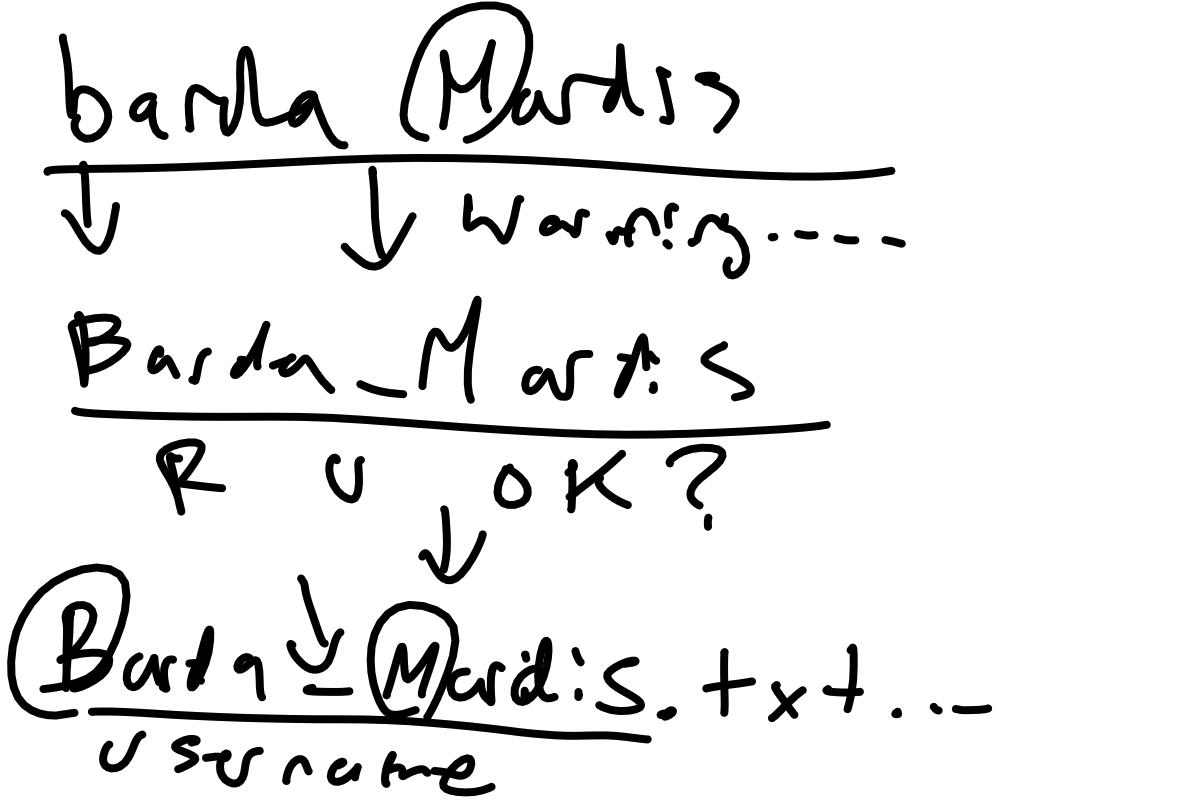 barda Mardis
Warning.----
Barda_Mardis
R U OK?
Barda_Mardis.txt...
username